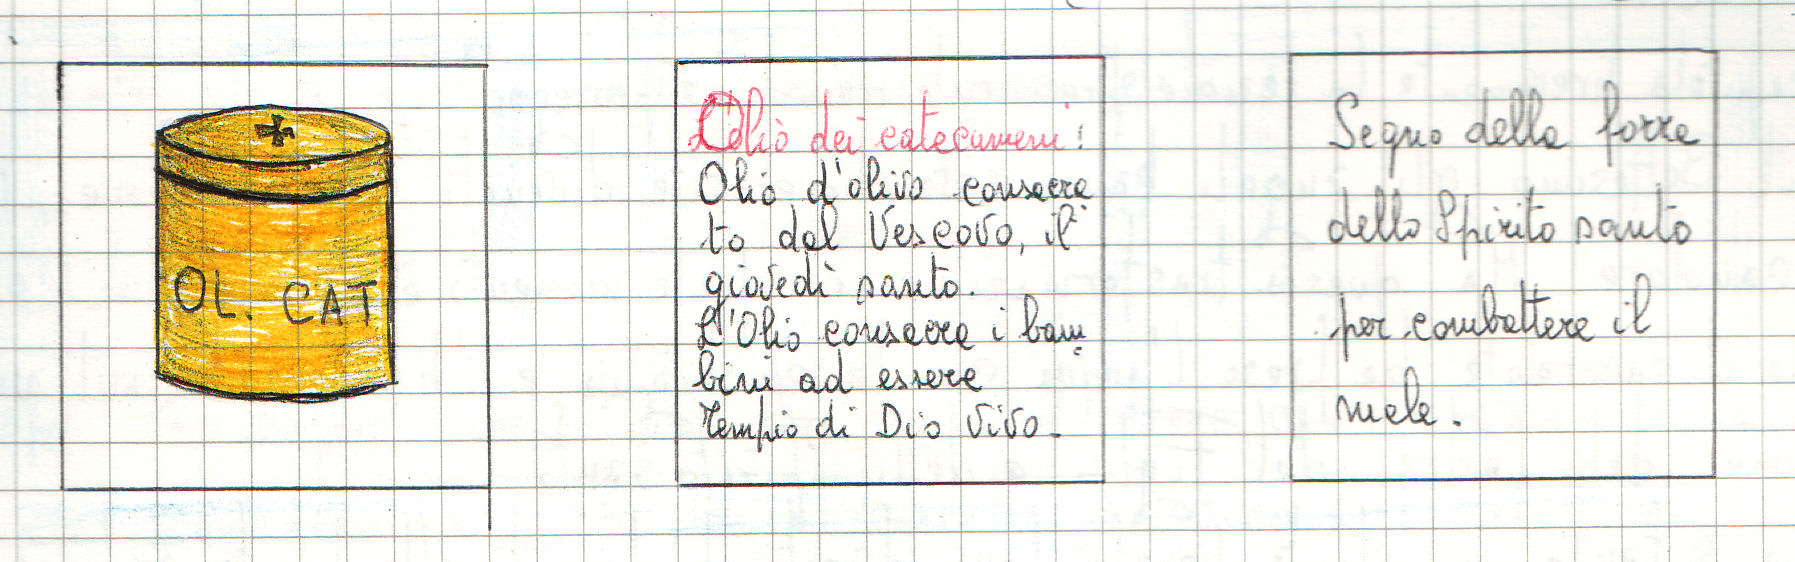 OL. CAT
L'Olio dei catecumeni:
Olio d'olivo consacra
to dal Vescovo, il
giovedì santo.
L'Olio consacra i bam
bini ad essere
tempio di Dio vivo.
Segno della forza
dello Spirito santo
per combattere il
male.